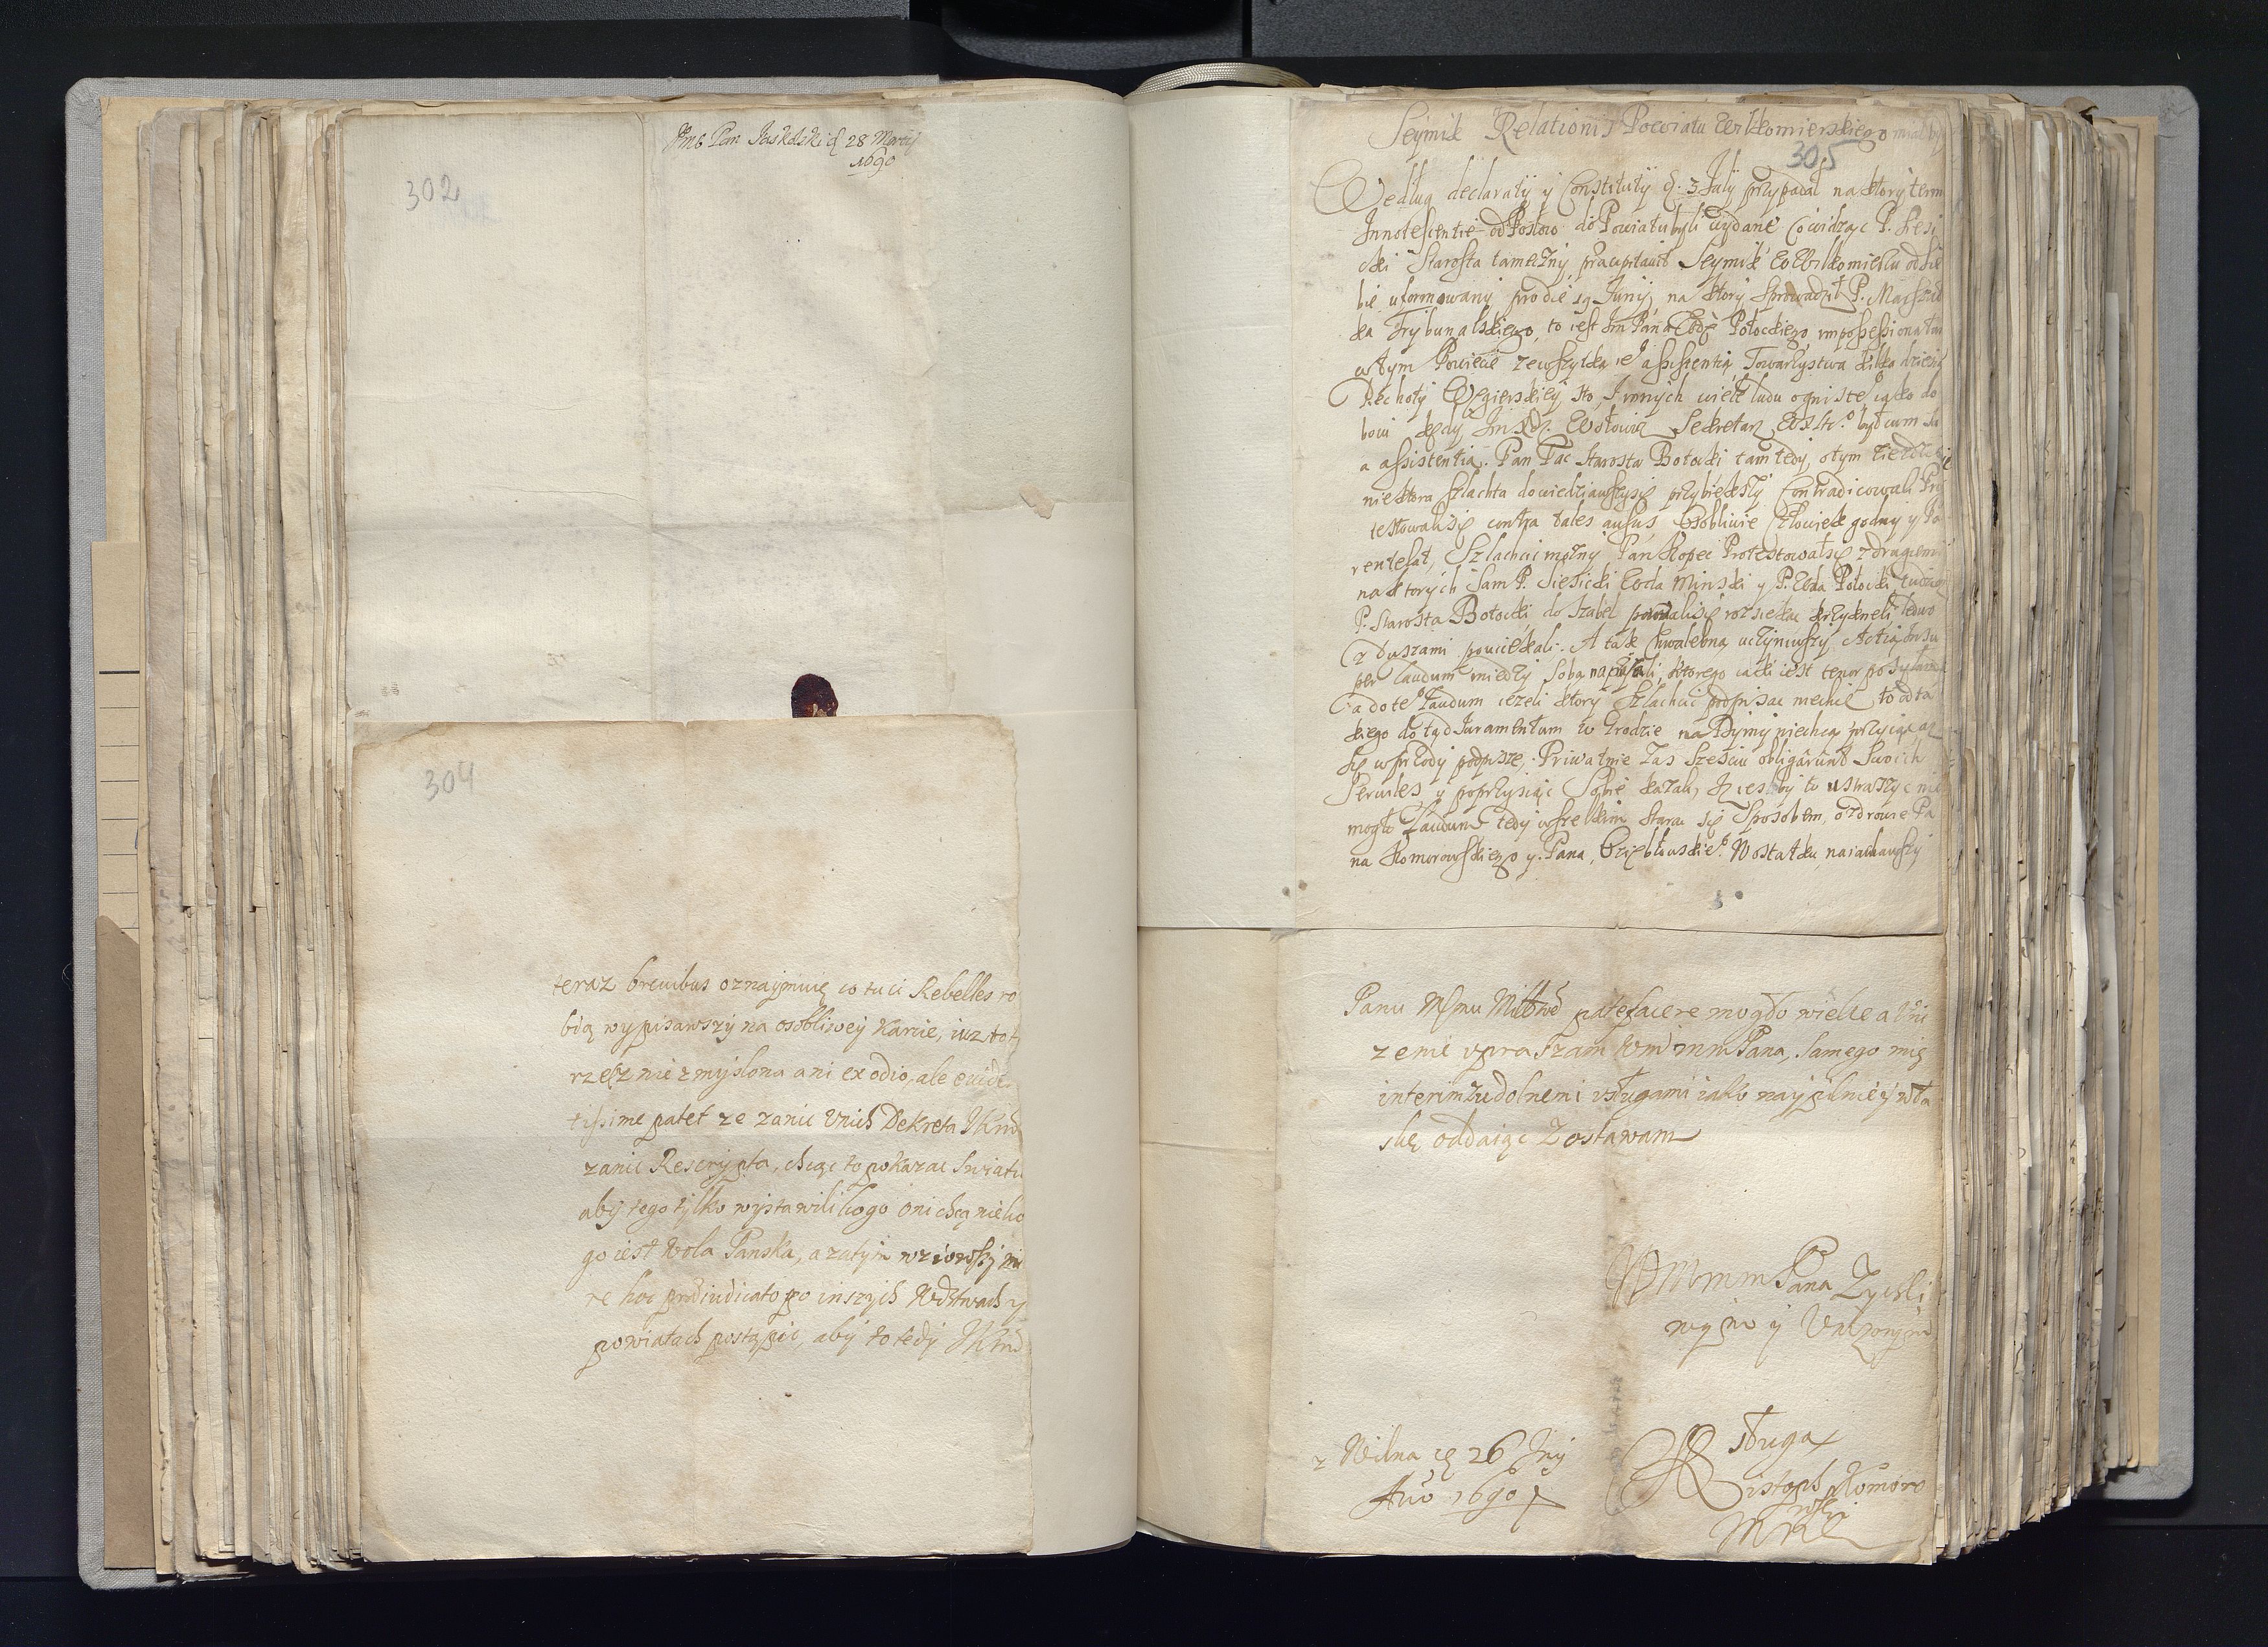 Jmć Pan Jaskolski d 28 Martij
1690
302
304
teraz brevibus oznaymuię co tu ci Rebelles ro
bią wypisawszy na osobliwey karcie, iuz to t
rzecz nie zmyslona ani ex odio, ale evide
tissime patet ze zanic Unich Dekreta JKM
zanic Rescrypta, chcąc to pokazac Swiatu
aby tego tylko wystawili kogo oni chcą nie ko
go iest Wola Panska, a zatym wziowszy
re hoc prdiudicato po inszych Wdztwach y
powiatach postąpic, aby to tedy JKM
Seymik Relationis Powiatu Wilkomierskiego miał by
305
Według declaratij y Constitutij d. 3 Julij przypadał na ktory term
Innotescentie od Posłow do Powiatu byli wydane Co widząc P. Siesi
cki Starosta tameczny praecipitavit Seymik w Wilkomierzu od sie
bie uformowany pro die 19 Junij, na ktory sprowadził P. Marszał
ka Trybunalskiego, to iest Jm Pana Wdę Połockiego, impossesionatum
w tym Powiecie ze wszytką ie assistentią Towarzystwa kilka dziesią
Piechoty Węgierskiey sto, I innych wiele ludu ogniste iako do
boiu kędy Jm Xdz. Wołowicz Sekretarz był cum su
a assistentia. Pan Pac Starosta Botocki tam tedy, o tym
niektora Szlachta dowiedziawszysię przybiegszy Contradicowali Pro
testowalisię contra tales ausus, Osobliwie Człowiek godny y Pa
rentelat, Szlachcic mozny Pan Kopec Protestowałsię z drugiemi
na ktorych Sam P. Siesicki Woda Minski y P. Wda Połocki tudziesz
P. Starosta Botocki, do Szabel porwalisię rozsiekac krzykneli ledwo
z duszami pouciekali. A tak Chwalebną uczyniwszy Actią
per laudum miedzy sobą napisali, ktorego iaki iest tenor posyłam
a do te laudum iezeli ktory Szlachcic podpisac niechce to od ta
kiego do tąd Juramentum w Grodzie na Dymy niechcą przyiąc az
się w przody podpisze, Priwatnie Zas Szesciu obligarunt Swoich
Serviles y poprzysiąc Sobie kazali, Jzesliby to ustraszyc nie
mogło Laudum tedy wszelkim starac się Sposobem, o zdrowie Pa
na Komorowskiego y Pana, Wostatku naiachawszy
Panu Memu Mttwe patefacere mogło wielce a Uni
zenie upraszam Wm mm Pana, samego mię
interim zudolnemi usługami iako naypilniey w ła
skę oddaiąc Zostawam
Wm mm Pana Zyczli
wym y Unizonym
sługa
z Wilna d 26 Jnij
Ano 1690
Kristoph Komoro
wski